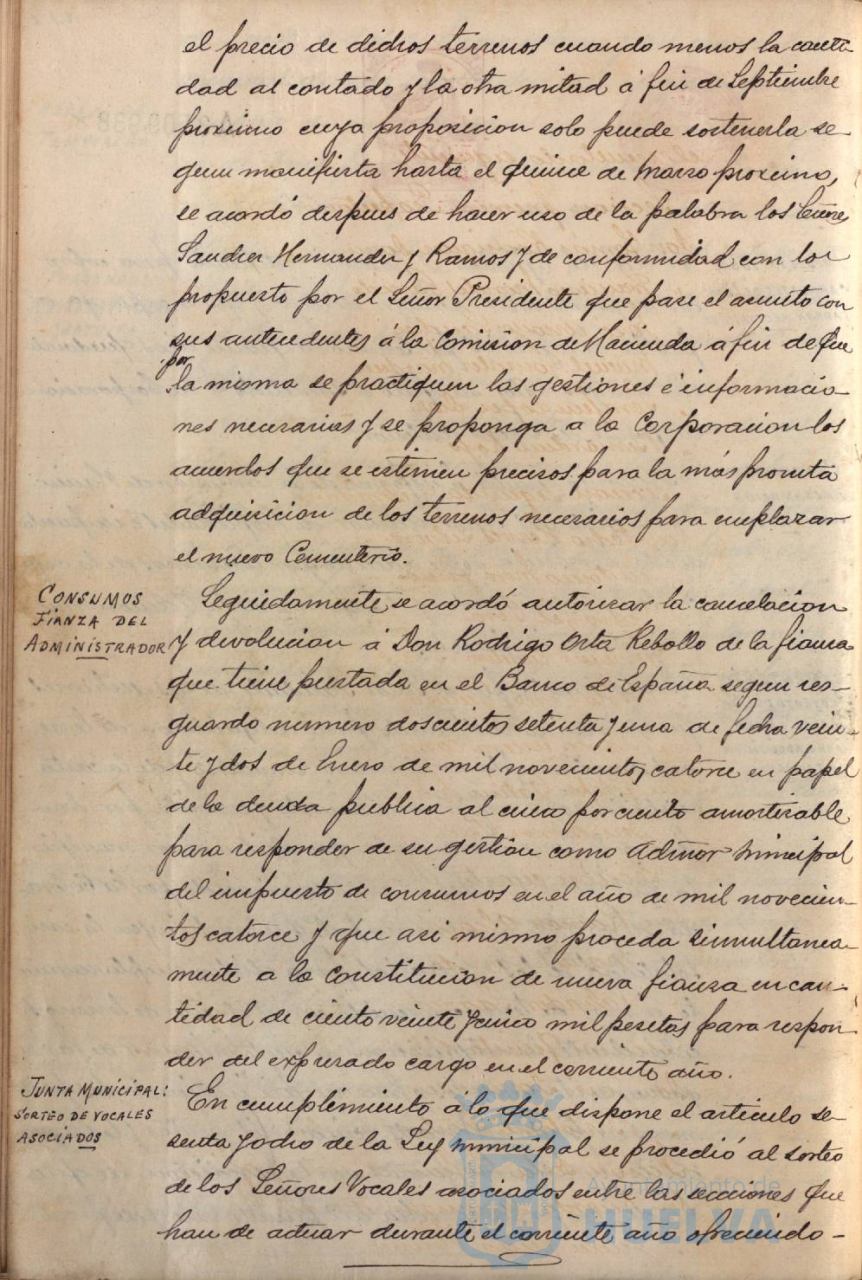 el precio de dichos terrenos cuando menos la canti
dad al contado y la otra mitad á fin de Septiembre
proximo cuya proposicion solo puede sostenerla se-
gun manifiesta hasta el quince de Marzo proximo,
se acordó despues de hacer uso de la palabra los Señores
Sanchez Hernandez y Ramos y de conformidad con lo
propuesto por el Señor Presidente que pase el asunto con
sus antecedentes á la Comision de Hacienda á fin de que
por
la misma se practiquen las gestiones é informacio-
nes necesarias y se proponga a la Corporacion los
acuerdos que se estimen precisos para la más pronta
adquisicion de los terrenos necesarios para emplazar
el nuevo Cementerio.
CONSUMOS
FIANZA DEL
ADMINISTRADOR
Seguidamente se acordó autorizar la cancelacion
y devolucion á Don Rodrigo Orta Rebollo de la fianza
que tiene prestada en el Banco de España segun res-
guardo numero doscientos setenta y una de fecha vein-
te y dos de Enero de mil novecientos catorce en papel
de la deuda publica al cinco por ciento amortizable
para responder de su gestion como Admor municipal
del impuesto de consumos en el año de mil novecien-
tos catorce y que asi mismo proceda simultanea-
mente a la constitucion de nueva fianza en can-
tidad de ciento veinte y cinco mil pesetas para respon-
der del expresado cargo en el corriente año.
JUNTA MUNICIPAL:
SORTEO DE VOCALES
ASOCIADOS
En cumplimiento á lo que dispone el articulo se-
senta y ocho de la Ley municipal se procedió al sorteo
de los Señores Vocales asociados entre las secciones que
han de actuar durante el corriente año ofreciendo-
Ayuntamiento de
HUELVA